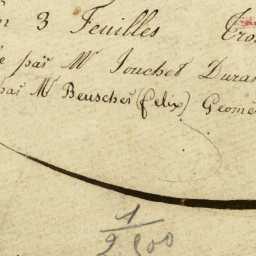 n 3 Feuilles Tro
e par Mr Jouchet Duran
par Mr Beuscher (félix) Géomè
1
2500